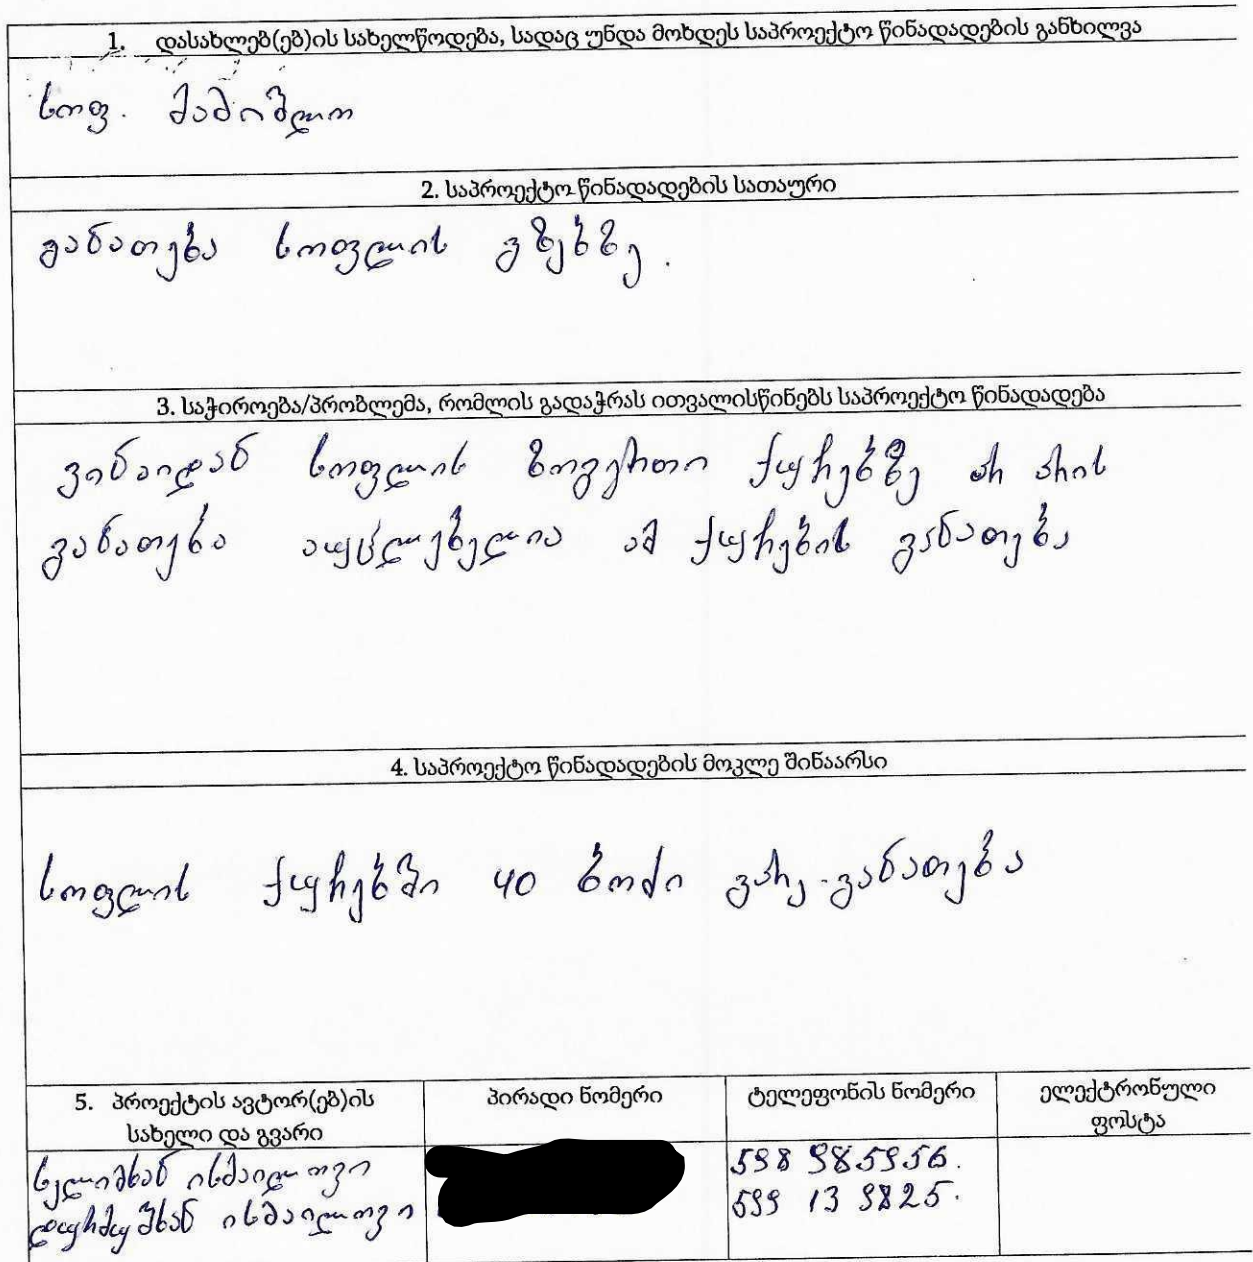 1. დასახლებ(ებ)ის სახელწოდება, სადაც უნდა მოხდეს საპროექტო წინადადების განხილვა
სოფ.
2. საპროექტო წინადადების სათაური
განათება სოფლის გზებზე.
3. საჭიროება/პრობლემა, რომლის გადაჭრას ითვალისწინებს საპროექტო წინადადება
ვინაიდან სოფლის ზოგერთი ქუჩებზე არ არის
განათება აუცლებელია ამ ქუჩების განათება
4. საპროექტო წინადადების მოკლე შინაარსი
სოფლის ქუჩებში 40 ბოძი გარე-განათება
5. პროექტის ავტორ(ებ)ის სახელი და გვარი
პირადი ნომერი
ტელეფონის ნომერი
ელექტრონული ფოსტა
სელიმხან ისმაილოვი
598 985956.
ისმაილოვი
599 13 9825.